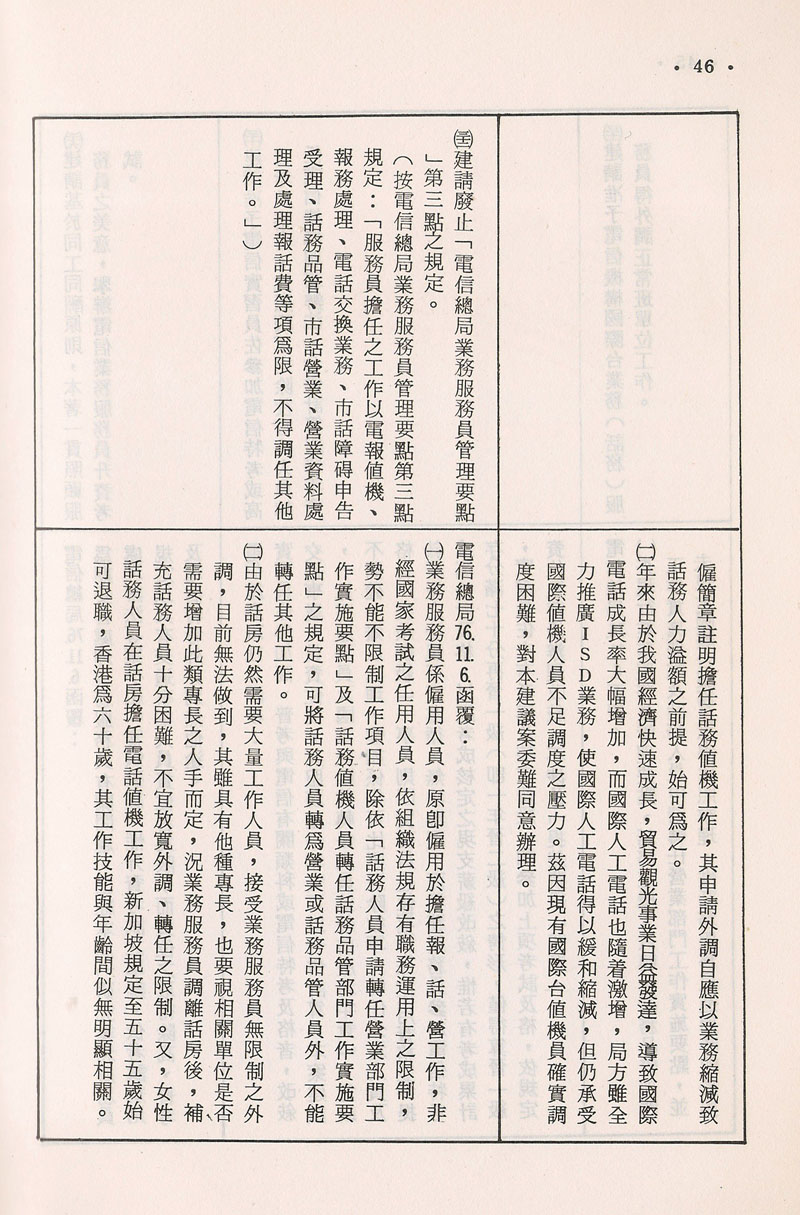 • 46 •
僱簡章註明擔任話務値機工作，其申請外調自應以業務縮減致
話務人力溢額之前提，始可爲之。
㈡年來由於我國經濟快速成長，貿易觀光事業日益發達，導致國際
電話成長率大幅增加，而國際人工電話也隨着激增，局方雖全
力推廣ＩＳＤ業務，使國際人工電話得以緩和縮減，但仍承受
國際値機人員不足調度之壓力。茲因現有國際台値機員確實調
度困難，對本建議案委難同意辦理。
建請廢止「電信總局業務服務員管理要點
」第三點之規定。
（按電信總局業務服務員管理要點第三點
規定：「服務員擔任之工作以電報値機、
報務處理、電話交換業務、市話障碍申告
受理、話務品管、市話營業、營業資料處
理及處理報話費等項爲限，不得調任其他
工作。」）
電信總局76.11.6.函覆：
㈠業務服務員係僱用人員，原卽僱用於擔任報、話、營工作，非
經國家考試之任用人員，依組織法規存有職務運用上之限制，
勢不能不限制工作項目，除依「話務人員申請轉任營業部門工
作實施要點」及「話務値機人員轉任話務品管部門工作實施要
點」之規定，可將話務人員轉爲營業或話務品管人員外，不能
轉任其他工作。
㈡由於話房仍然需要大量工作人員，接受業務服務員無限制之外
調，目前無法做到，其雖具有他種專長，也要視相關單位是否
需要增加此類專長之人手而定，況業務服務員調離話房後，補
充話務人員十分困難，不宜放寬外調、轉任之限制。又，女性
話務人員在話房擔任電話値機工作，新加坡規定至五十五歲始
可退職，香港爲六十歲，其工作技能與年齡間似無明顯相關。